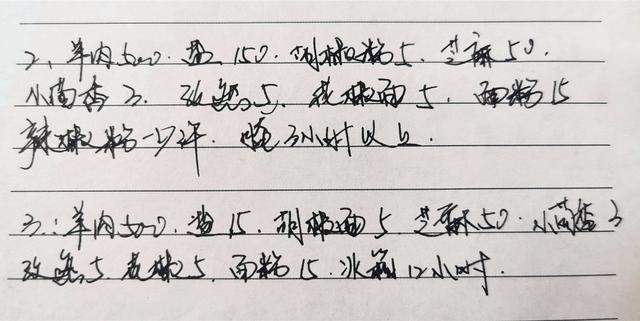 2、羊肉500.盐150.胡椒粉5.芝麻50.
小茴香3.孜然5.花椒面5.面粉15
辣椒粉一少许.腌3小时以上.
3:羊肉500.盐15.胡椒面5.芝麻50.小茴香3
孜然5.花椒5.面粉15.冰箱12小时.